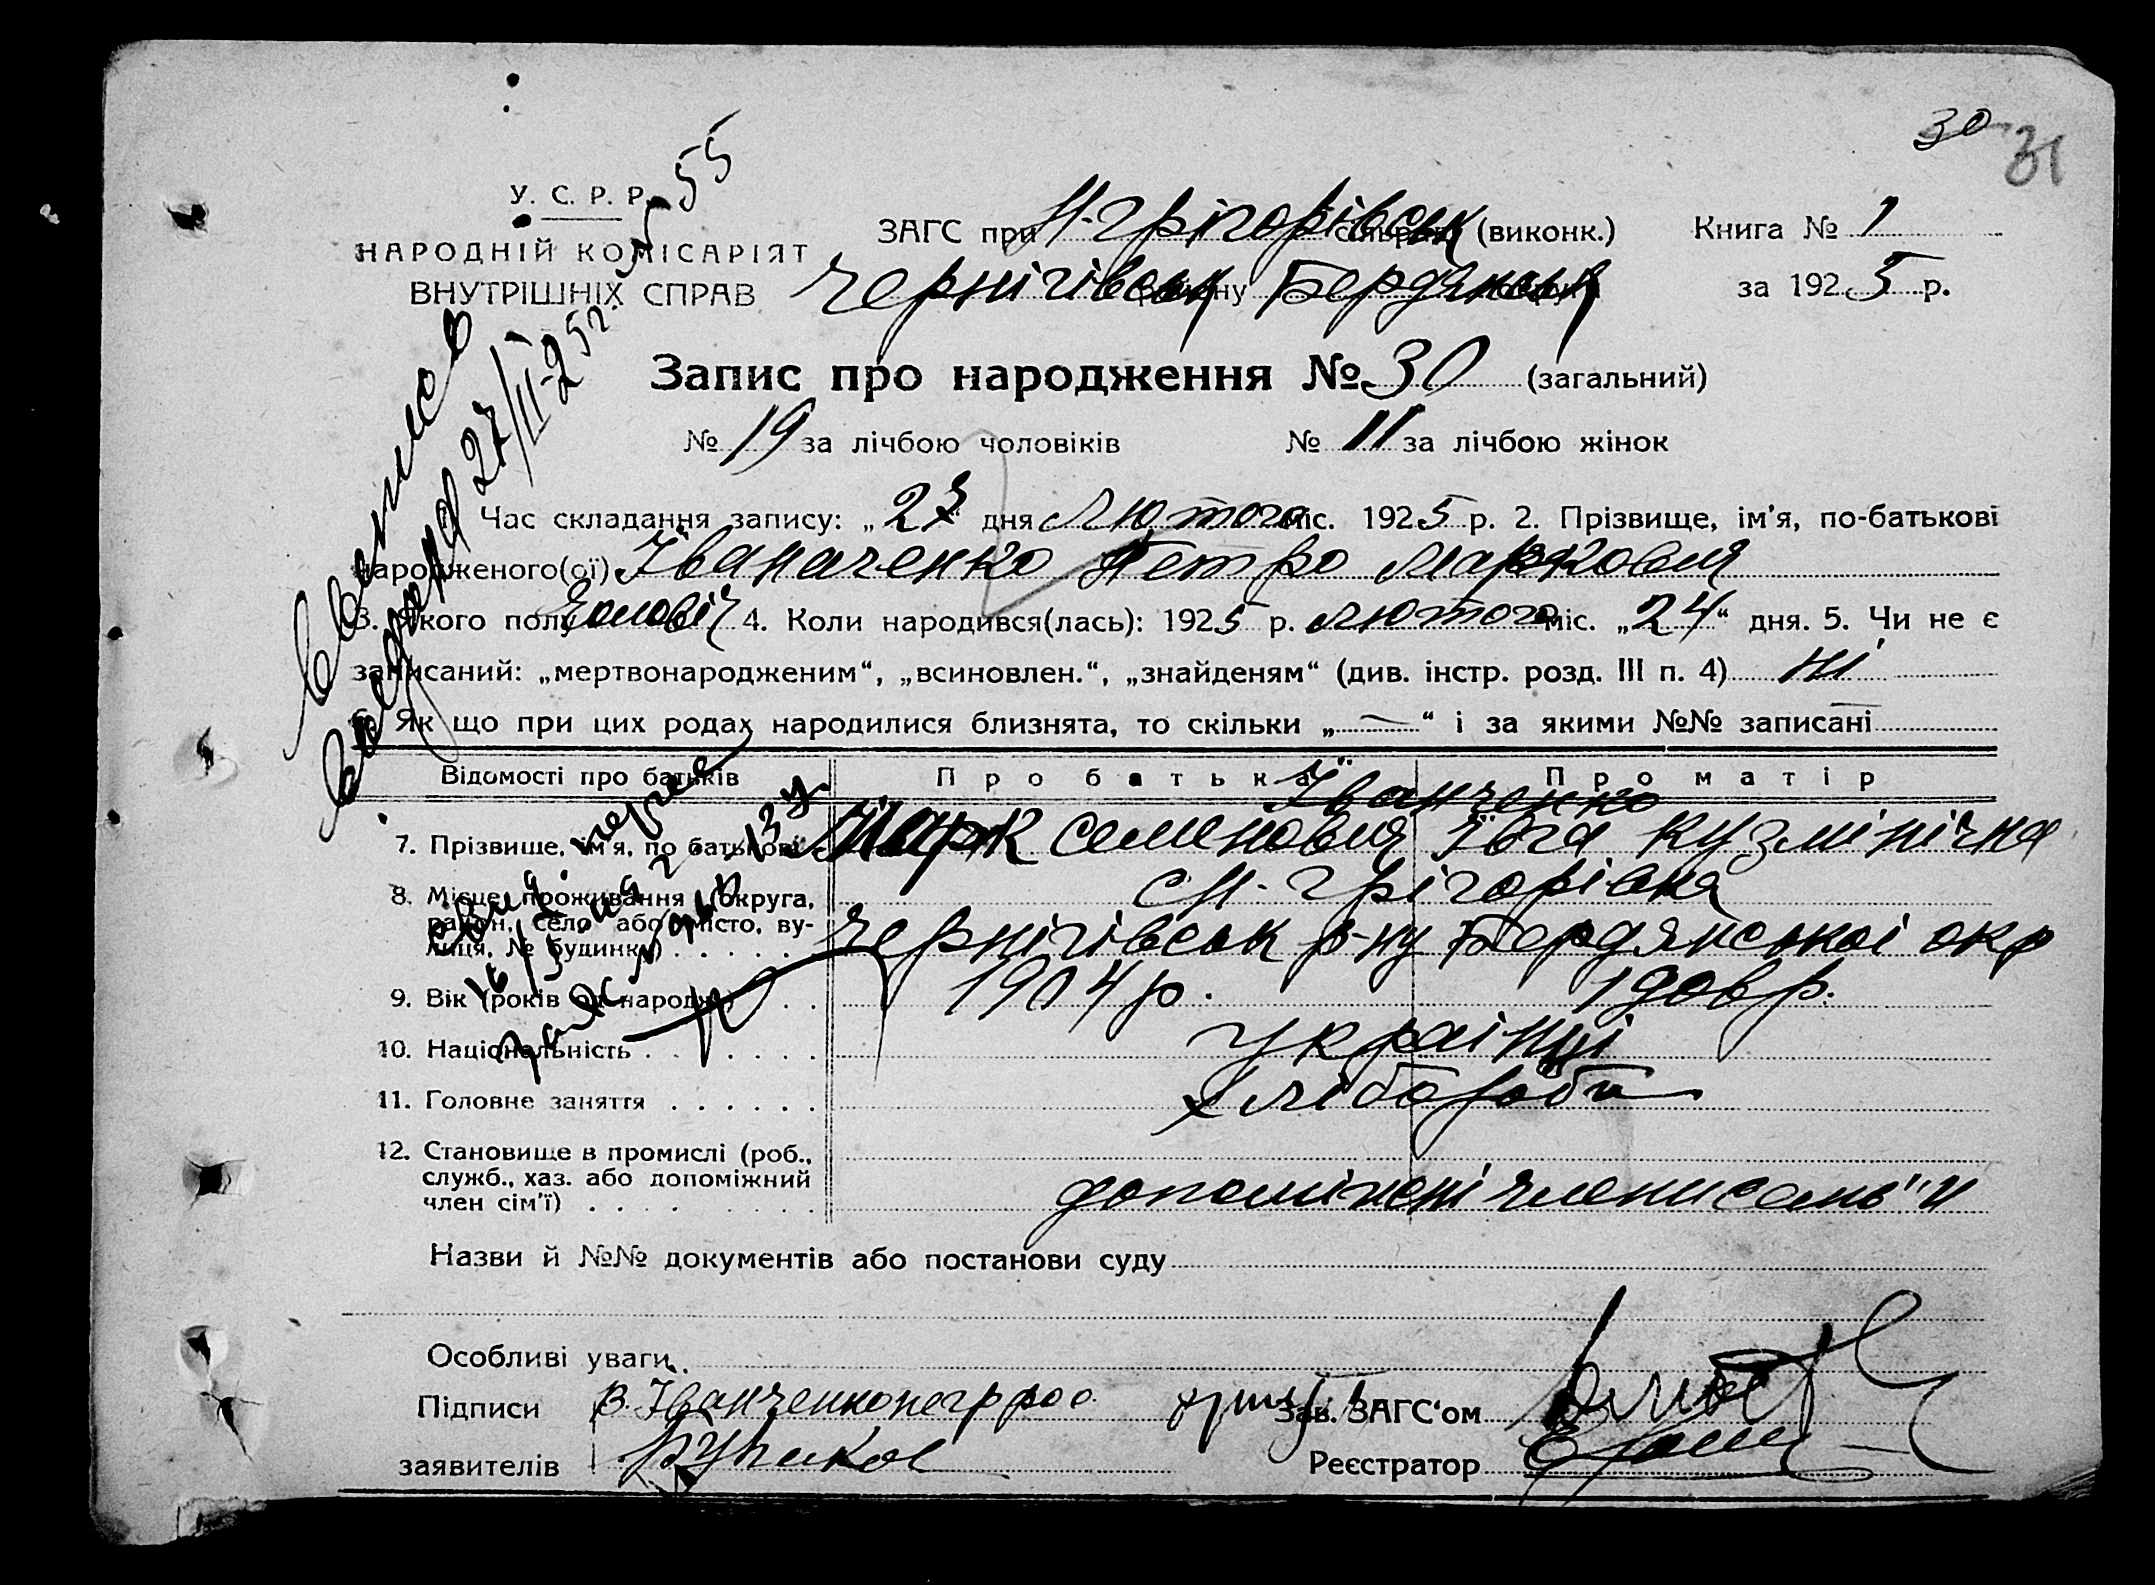 30 31
У. С. Р. Р.
НАРОДНІЙ КОМІСАРІЯТ
ВНУТРІШНІХ СПРАВ
ЗАГС при Н-Грігорівськ (виконк.) Книга № 1
Чернігівськ Бердянськ за 1925 р.
Запис про народження № 30 (загальний)
№ 19 за лічбою чоловіків № 11 за лічбою жінок
Час складання запису: „27“ дня Лютого міс. 1925 р. 2. Прізвище, ім'я, по-батькові
народженого(ої) Іваначенко Петро Маркович
3. Якого полу Чоловіч 4. Коли народився(лась): 1925 р. лютого міс. „24“ дня. 5. Чи не є
записаний: „мертвонародженим“, „всиновлен.“, „знайденям“ (див. інстр. розд. III п. 4) ні
6. Як що при цих родах народилися близнята, то скільки „—“ і за якими №№ записані —
Відомості про батьків Про батька Про матір
Іванченко
7. Прізвище, ім'я, по батькові Марк Семенович Ївга Кузмінічна
8. Місце проживання (округа, с Н-Грігорівка
район, село або місто, ву-
лиця, № будинку) Чернігівськ р-ну Бердянськоі окр
9. Вік (років од народж.) 1904 р. 190 р.
10. Національність українці
11. Головне заняття хлібороби
12. Становище в промислі (роб.,
служб., хаз. або допоміжний
член сім'ї) допоміжні члени семь"и
Назви й №№ документів або постанови суду
Особливі уваги
Підписи Іванченко Зав. ЗАГС‘ом
заявителів Реєстратор
27/II-25 г.